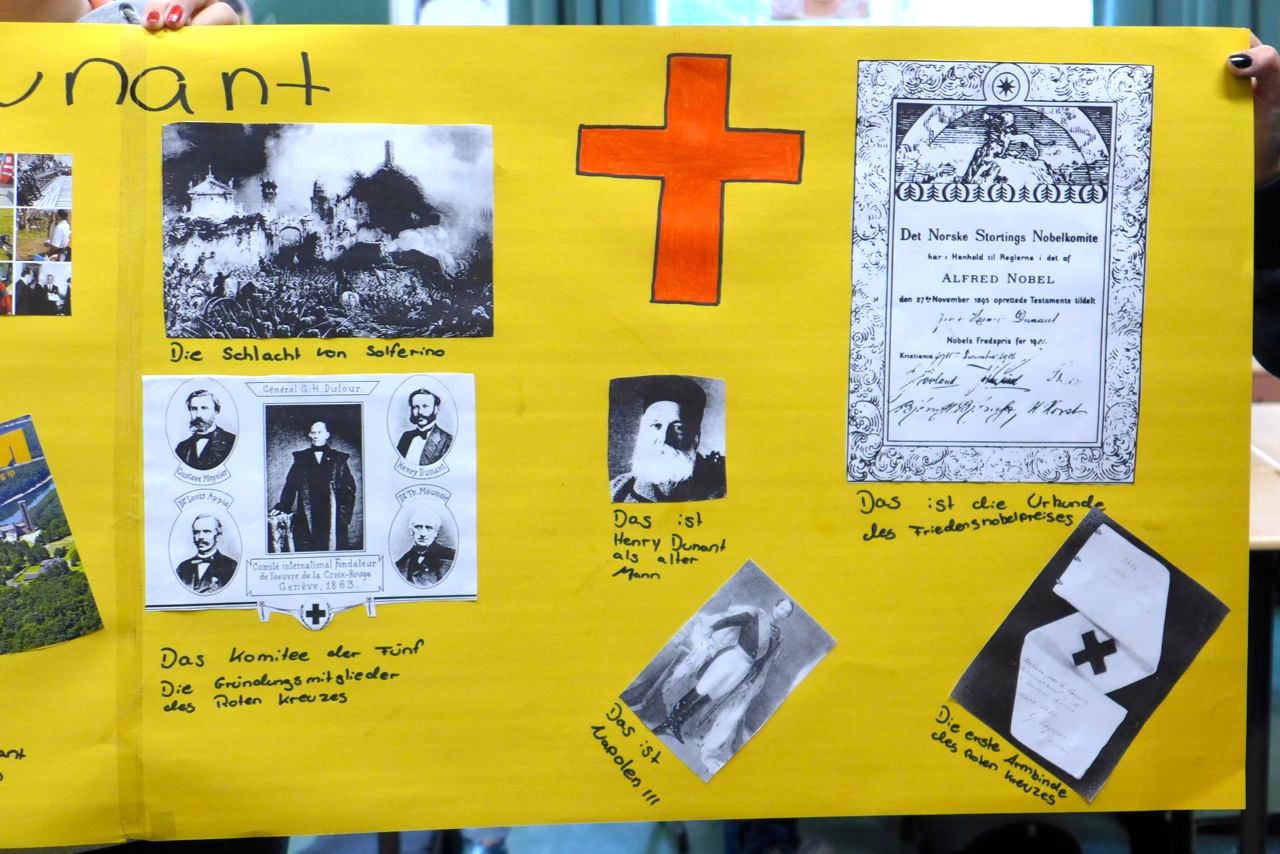 unant
Die Schlacht von Solferino
Général G. H. Dufour
Gustave Moynier
Henry Dunant
Dr Louis Appia
Dr Th. Maunoir
Comité international Fondateur
de l'oeuvre de la Croix-Rouge
Genève, 1863.
Das Komitee der Fünf
Die Gründungsmitglieder
des Roten Kreuzes
Das ist
Henry Dunant
als alter
Mann
Das ist
Napolen III
Det Norske Stortings Nobelkomite
har i Henhold til Reglerne i det af
ALFRED NOBEL
den 27de November 1895 oprettede Testamente tildelt
Henri Dunant
Nobels Fredspris for 1901.
Kristiania
Das ist die Urkunde
des Friedensnobelpreises
Die erste Armbinde
des Roten Kreuzes